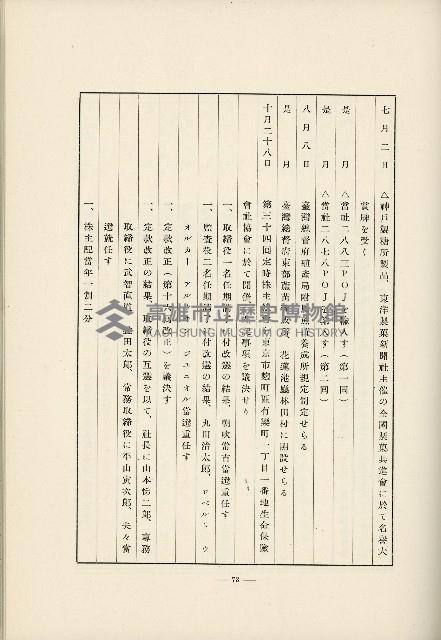 七月二日 △神戸製糖所製品、東洋製菓新聞社主催の全國製菓共進會に於て名譽大
賞牌を受く
是月 △當社二八八三POJを輸入す(第一回)
是月 △當社二八七八POJを輸入す(第二回)
八月八日 臺灣總督府殖產局附屬蔗苗養成所規定制定せらる
是月 臺灣總督府東部蔗苗養成所、花蓮港廳林田村に開設せらる
十月二十八日 第三十四回定時株主總會を東京市麴町區有樂町一丁目一番地生命保險
會社協會に於て開催し左記事項を議決せり
一、取締役一名任期滿了に付改選の結果、朝吹常吉當選重任す
一、監査役二名任期滿了に付改選の結果、丸田治太郎、ロベルト、ウ
オルカー、アルウヰン、ジユニオル當選重任す
一、定款改正(第十 改正)を議決す
一、定款改正の結果、取締役の互選を以て、社長に山本悌二郎、專務
取締役に武智直道、 田太郎、常務取締役に平山寅次郎、夫々當
選就任す
一、株主配當年一割二分
— 73 —
高雄市立歷史博物館
KAOHSIUNG MUSEUM OF HISTORY